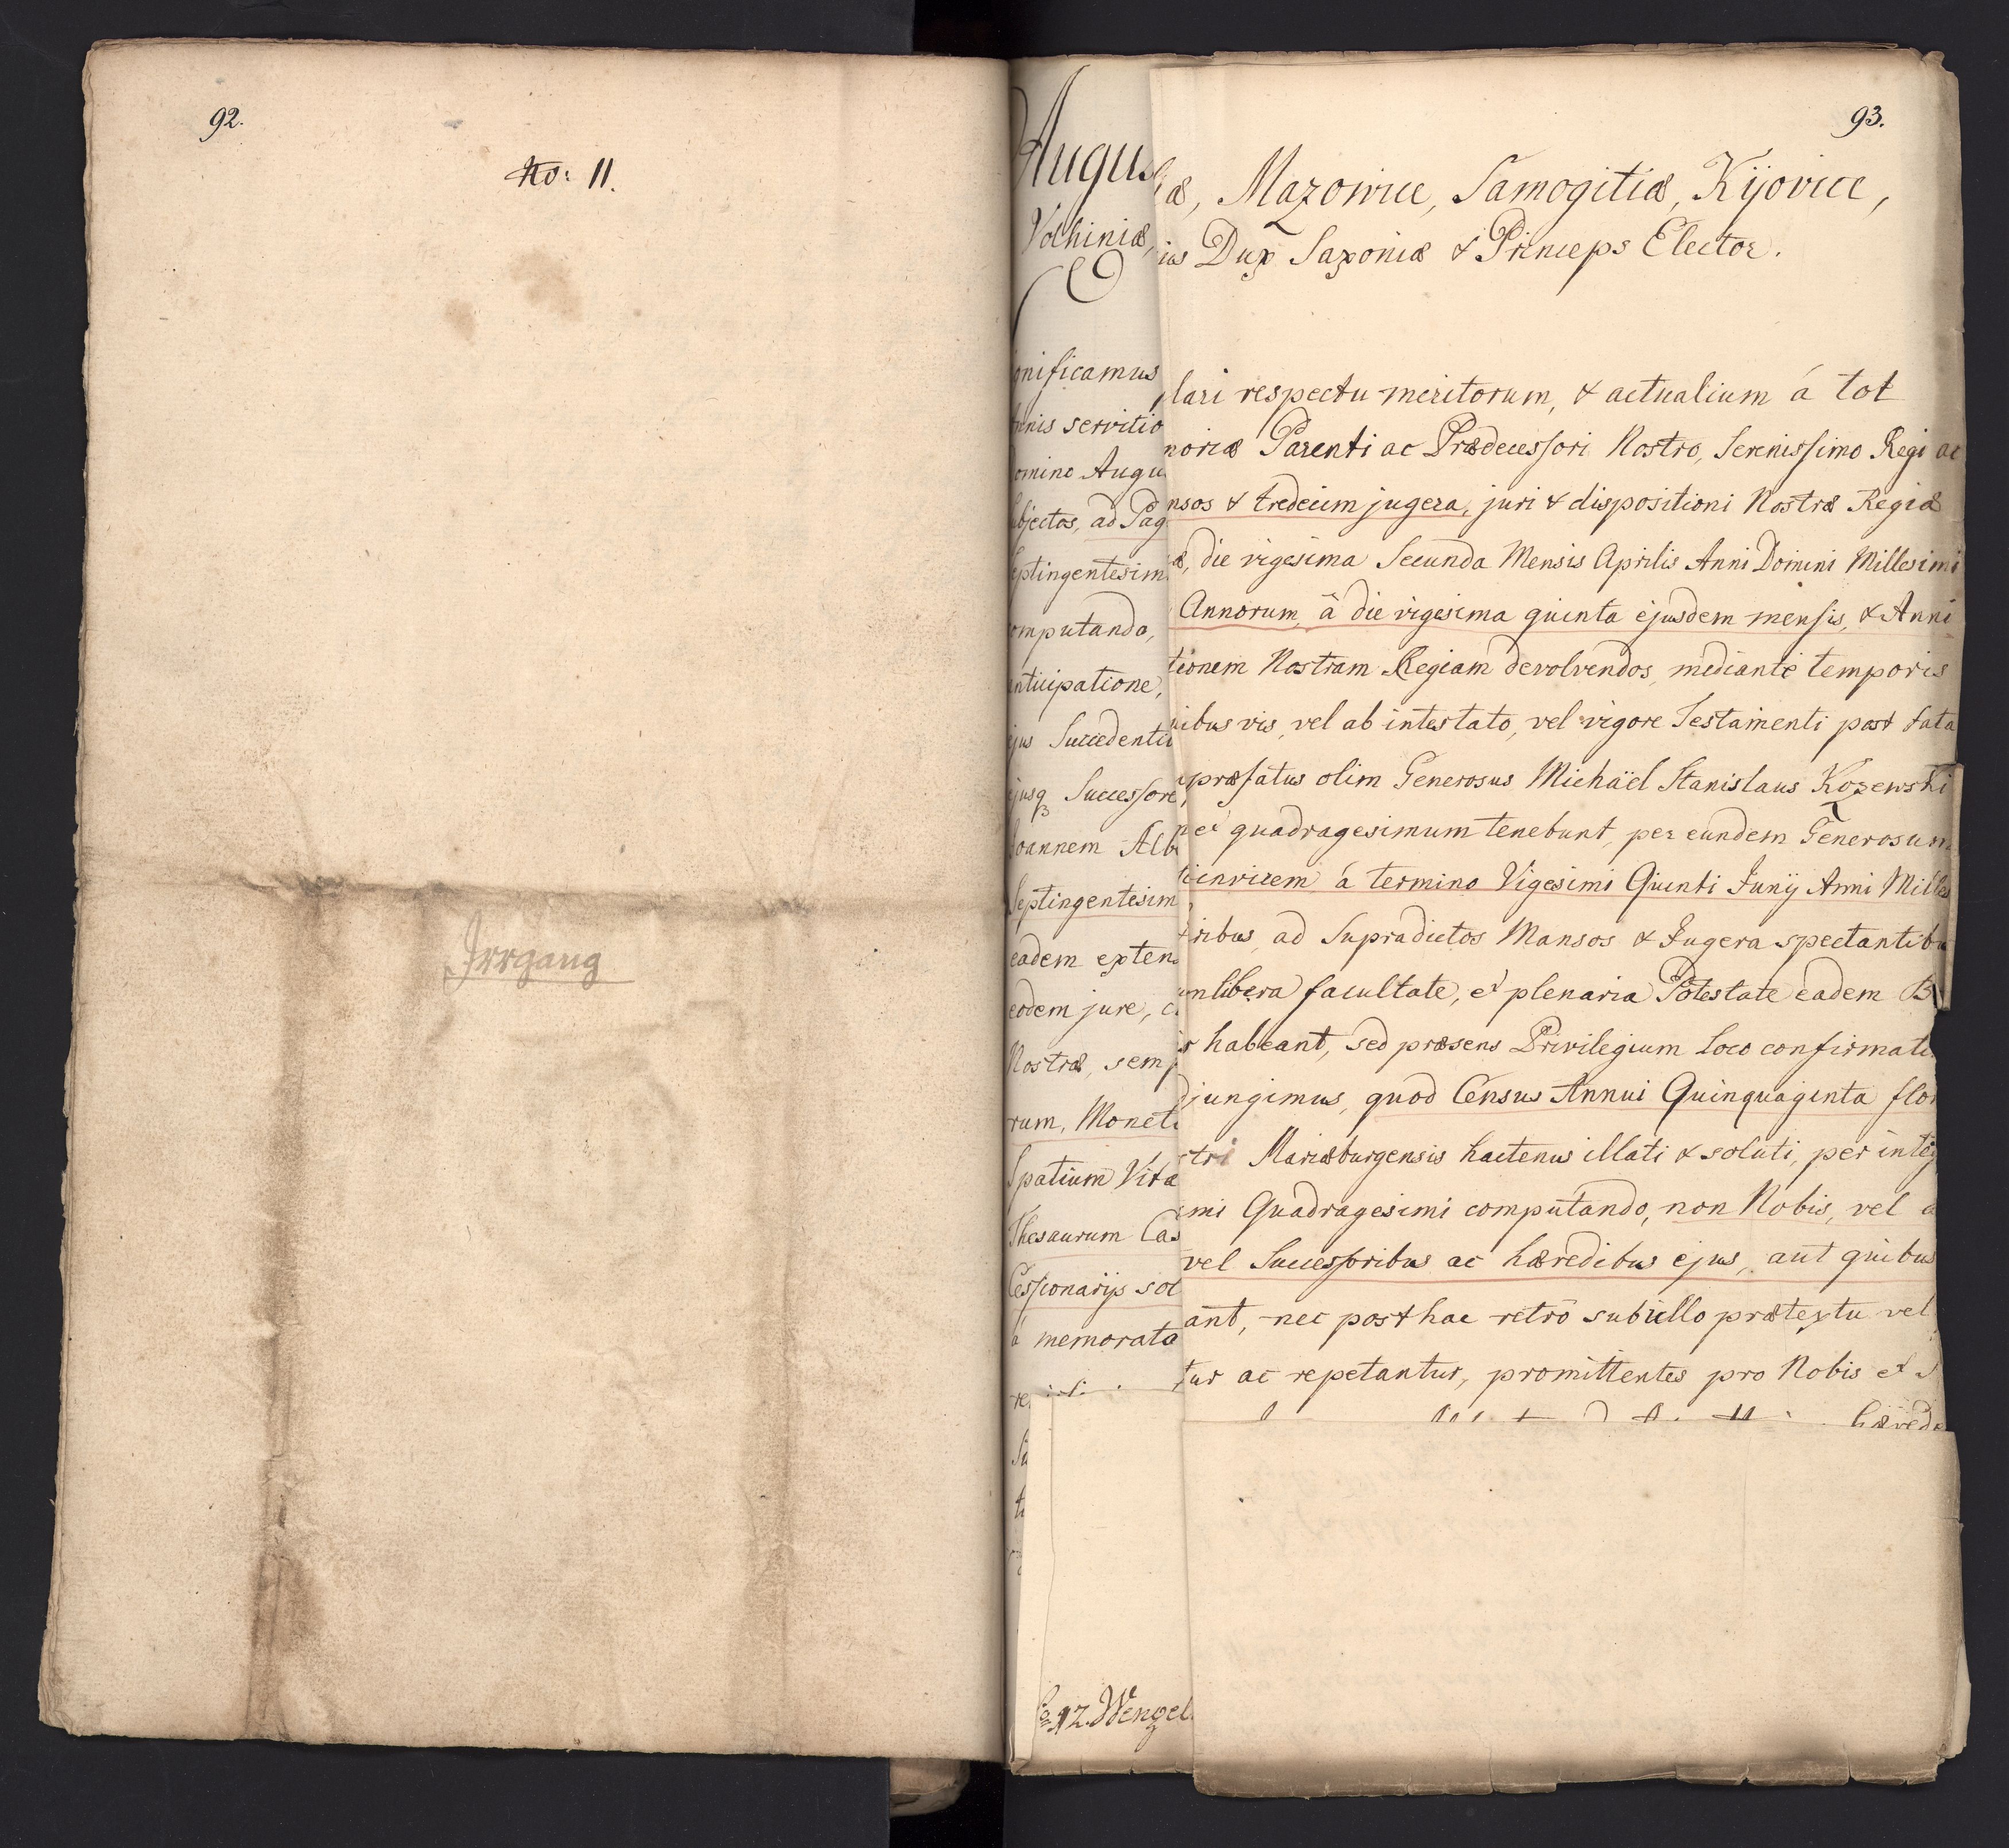 92.
No: 11.
Irrgang
Augus
Volhiniæ,
gnificamus
nnis servitio
omino Augu
bjectos, ad Pag
eptingentesim
omputando,
nticipatione,
ejus Succedenti
ejusq Successore
Joannem Alb
Septingentesim
eadem exten
eodem jure, c
Nostræ, sem
rum, Monet
Spatium Vitæ
Thesaurum Cas
Cessionarijs sol
á memorata
No 12. Wengel
93.
æ, Mazoviæ, Samogitiæ, Kijoviæ,
ius Dux Saxoniæ & Princeps Elector.
lari respectu meritorum, & actualium á tot
moriæ Parenti ac Prædecessori Nostro, Serenissimo Regi ac
nsos & tredecim jugera, juri & dispositioni Nostræ Regiæ
æ, die vigesima Secunda Mensis Aprilis Anni Domini Millesimi
Annorum, à die vigesima quinta ejusdem mensis, & Anni
tionem Nostram Regiam devolvendos, mediante temporis
uibus vis, vel ab intestato, vel vigore Testamenti post fata
præfatus olim Generosus Michäel Stanislaus Kozewski
nec quadragesimum tenebunt, per eundem Generosum
invicem á termino Vigesimi Quinti Junij Anni Milles
ribus, ad Supradictos Mansos & Jugera spectantibu
um libera facultate, et plenaria Potestate eadem B
r habeant, sed præsens Privilegium Loco confirmati
djungimus, quod Census Annui Quinquaginta flor
stri Mariæburgensis hactenus illati & soluti, per integ
imi Quadragesimi computando, non Nobis, vel a
vel Successoribus ac hæredibus ejus, aut quibus
ant, nec post hac retrò sub ullo prætextu vel
tur ac repetantur, promittentes pro Nobis et S
hærede